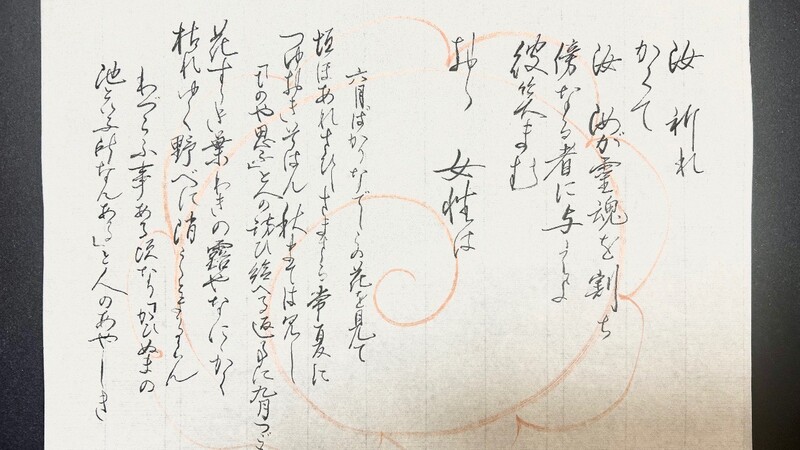 汝 祈れ
かくて
汝 汝が霊魂を割ち
傍なる者に与
彼笑まむ
おゝ 女性は
六月ばかりなでしこの花を見て
垣ほあれさびしさまさる常夏に
つゆおきそはん秋までは見じ
「ものや思ふ」と人の問ひ給へる返事に九月つご
花すゝき葉わきの露やなにゝかく
枯れゆく野べに消えとまるらん
わづらふ事ある頃なり「かひぬまの
池といふ所なんある」と人のあやしき